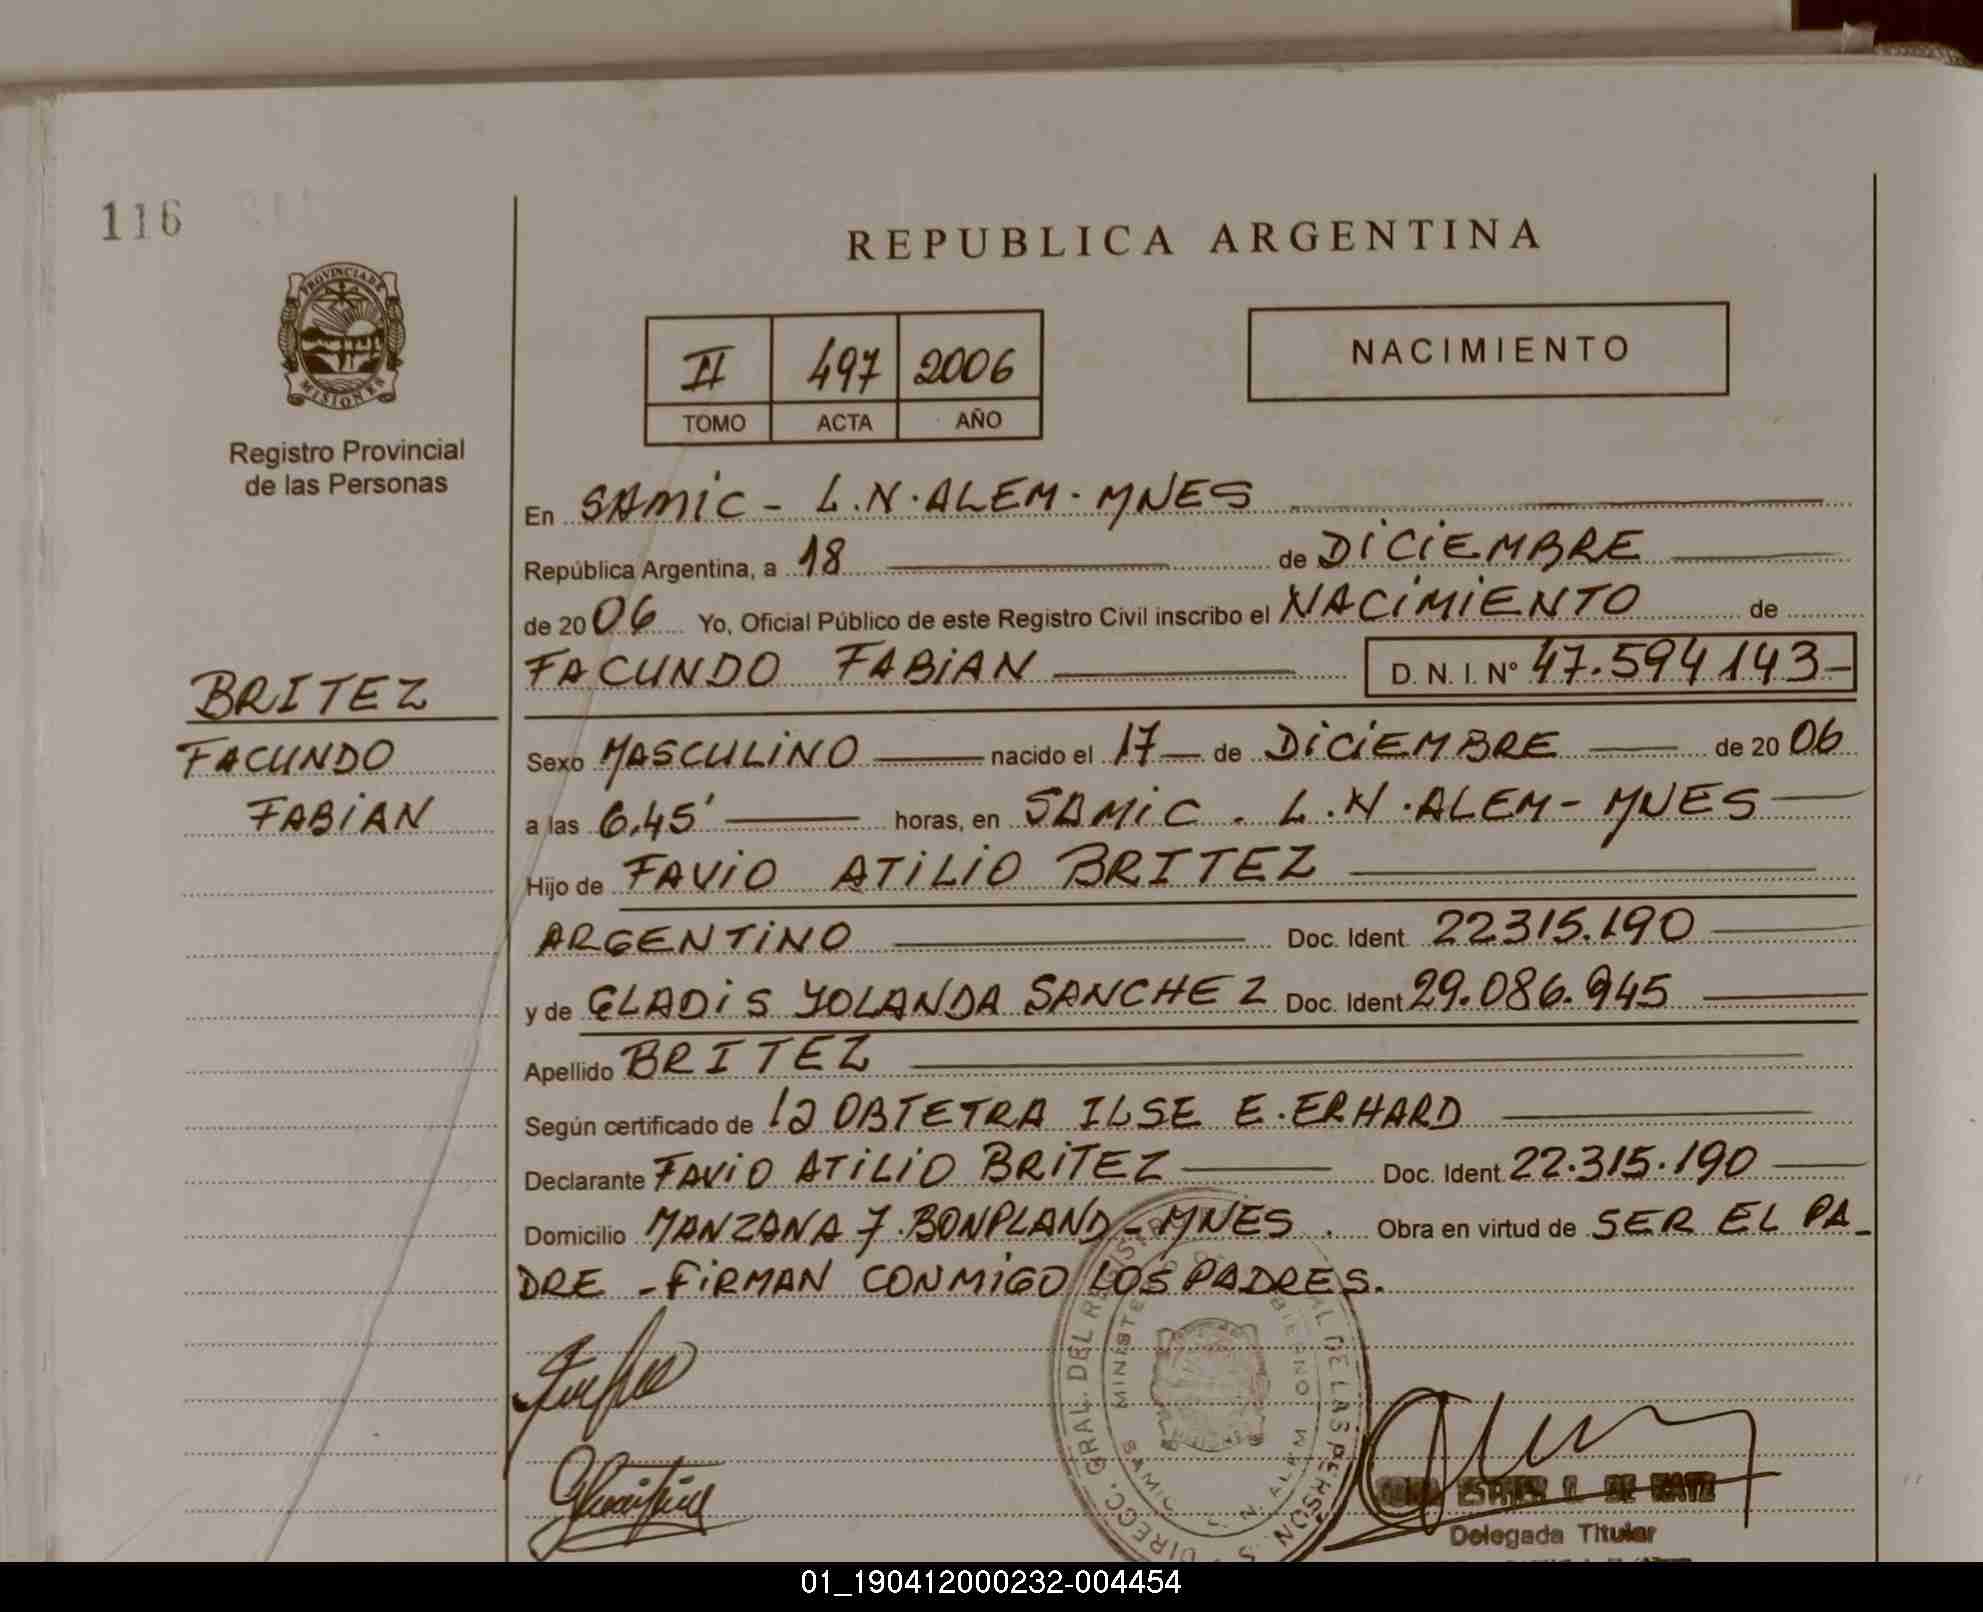 116
REPUBLICA ARGENTINA
PROVINCIA DE
MISIONES
Registro Provincial
de las Personas
II 497 2006
TOMO ACTA AÑO
NACIMIENTO
En SAMIC - L.N. ALEM - MNES
República Argentina, a 18 de DICIEMBRE
de 2006 Yo, Oficial Público de este Registro Civil inscribo el NACIMIENTO de
FACUNDO FABIAN D. N. I. Nº 47.594143-
BRITEZ
FACUNDO
FABIAN
Sexo MASCULINO nacido el 17 de DICIEMBRE de 2006
a las 6,45' horas, en SAMIC. L.N. ALEM - MNES
Hijo de FAVIO ATILIO BRITEZ
ARGENTINO Doc. Ident. 22315.190
y de GLADIS YOLANDA SANCHEZ Doc. Ident 29.086.945
Apellido BRITEZ
Según certificado de la OBTETRA ILSE E. ERHARD
Declarante FAVIO ATILIO BRITEZ Doc. Ident. 22.315.190
Domicilio MANZANA 7. BONPLAND - MNES. Obra en virtud de SER EL PA_
DRE - FIRMAN CONMIGO LOS PADRES.
DIRECC. GRAL. DEL DE LAS PERSONAS
SAMIC N. ALEM
ESTHER DE KATZ
Delegada Titular
01_190412000232-004454